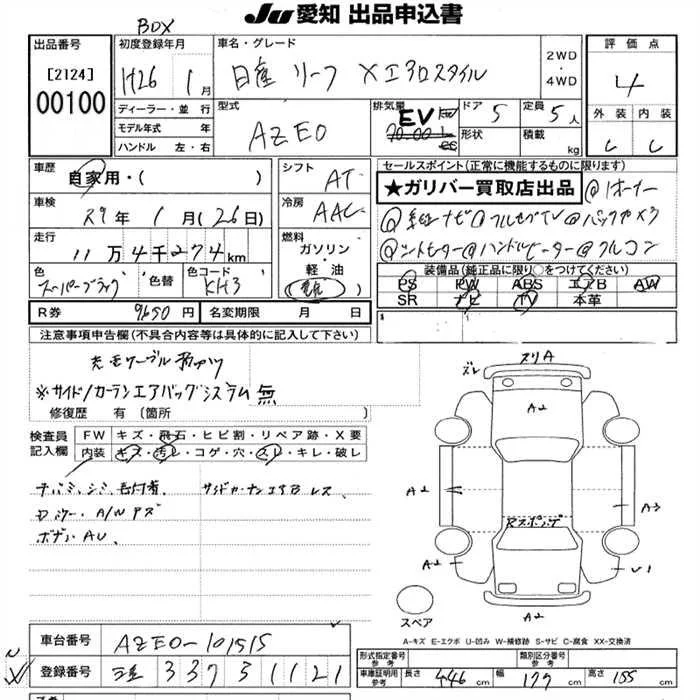 BOX
JU 愛知 出品申込書
出品番号 初度登録年月 車名・グレード 2WD・4WD 評価点
[2124]
00100
H26 1月 日産 リーフ Xエアロスタイル 4
ディーラー・並行 型式 排気量 ドア 定員 外装 内装
モデル年式 年 AZE0 EV 5 5人 C C
ハンドル 左・右 形状 積載 kg
車歴 自家用・( ) シフト AT セールスポイント(正常に機能するものに限ります)
★ガリバー買取店出品 @1オーナー
車検 29年1月(26日) 冷房 AAC @純正ナビ@フルセグTV@バックカメラ
走行 11万4千274km 燃料 ガソリン・軽油 @シートヒーター@ハンドルヒーター@フルコン
色 スーパーブラック 色替 色コード KH3 装備品(純正品に限り○をつけてください)
PS PW ABS エアB AW
SR ナビ TV 本革
R券 9650円 名変期限 月 日
注意事項申告欄(不具合内容等は具体的に記入して下さい)
充電ケーブル有
※サイド/カーテンエアバッグシステム無
修復歴 有〔箇所 〕
検査員記入欄 FW キズ・飛石・ヒビ割・リペア跡・X要
内装 キズ・汚レ・コゲ・穴・スレ・キレ・破レ
サイドカーテンエアBレス
A/Wキズ
ズレ スリA
A2
A2 A3
Rスポイラ
A2 U1
A2
スペア
A-キズ E-エクボ U-凹み W-補修跡 S-サビ C-腐食 XX-交換済
車台番号 AZE0-101515
登録番号 337 3 1121
形式指定番号 参考 類別区分番号 参考
車庫証明用 参考 長さ 446cm 幅 177cm 高さ 155cm